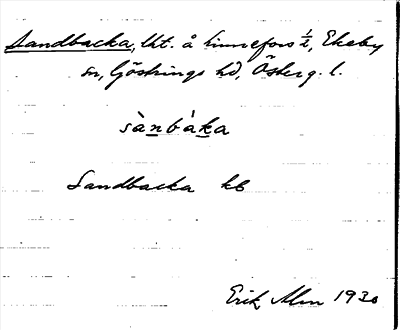 Sandbacka, lht. å Linnefors 1/2, Ekeby
sn, Göstrings hd, Österg. l.
sànbàka
Sandbacka kb
Erik Alm 1930